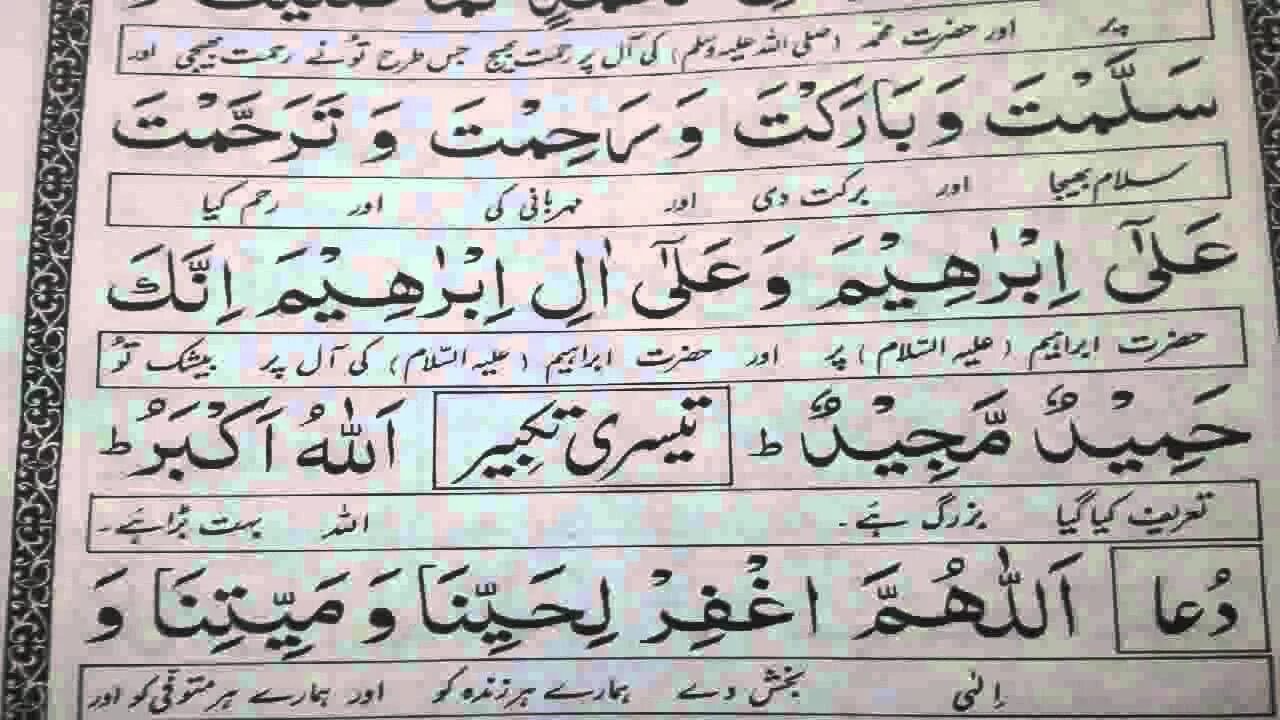 پر اور حضرت محمد (صلی اللہ علیہ وسلم) کی آل پر رحمت بھیج جس طرح تُو نے رحمت بھیجی اور
سَلَّمْتَ وَ بَارَكْتَ وَ رَحِمْتَ وَ تَرَحَّمْتَ
سلام بھیجا اور برکت دی اور مہربانی کی اور رحم کیا
عَلٰٓى اِبْرٰهِيْمَ وَ عَلٰٓى اٰلِ اِبْرٰهِيْمَ اِنَّكَ
حضرت ابراہیم (علیہ السّلام) پر اور حضرت ابراہیم (علیہ السّلام) کی آل پر بیشک تُو
حَمِيْدٌ مَّجِيْدٌ ط تیسری تکبِیر اَللّٰهُ اَكْبَرُ ط
تعریف کیا گیا بزرگ ہَے۔ اللہ بہت بڑا ہَے۔
دُعا اَللّٰهُمَّ اغْفِرْ لِحَيِّنَا وَ مَيِّتِنَا وَ
اِلٰہی بخش دے ہمارے ہر زندہ کو اور ہمارے ہر متوفّی کو اور